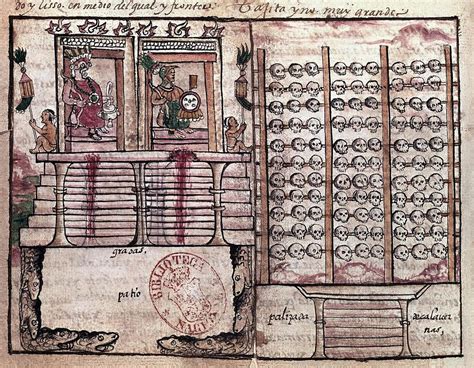 do y lisso. en medio del qual y frontero
Casita yva muy grande.
gradas,
patio
BIBLIOTECA
NACI
palizada
de calauer
nas,